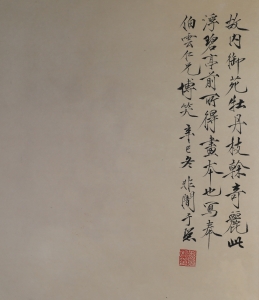 故内御苑牡丹枝榦奇麗此
浮碧亭前所得畫本也寫奉
伯雲仁兄博笑辛巳冬非闇于照